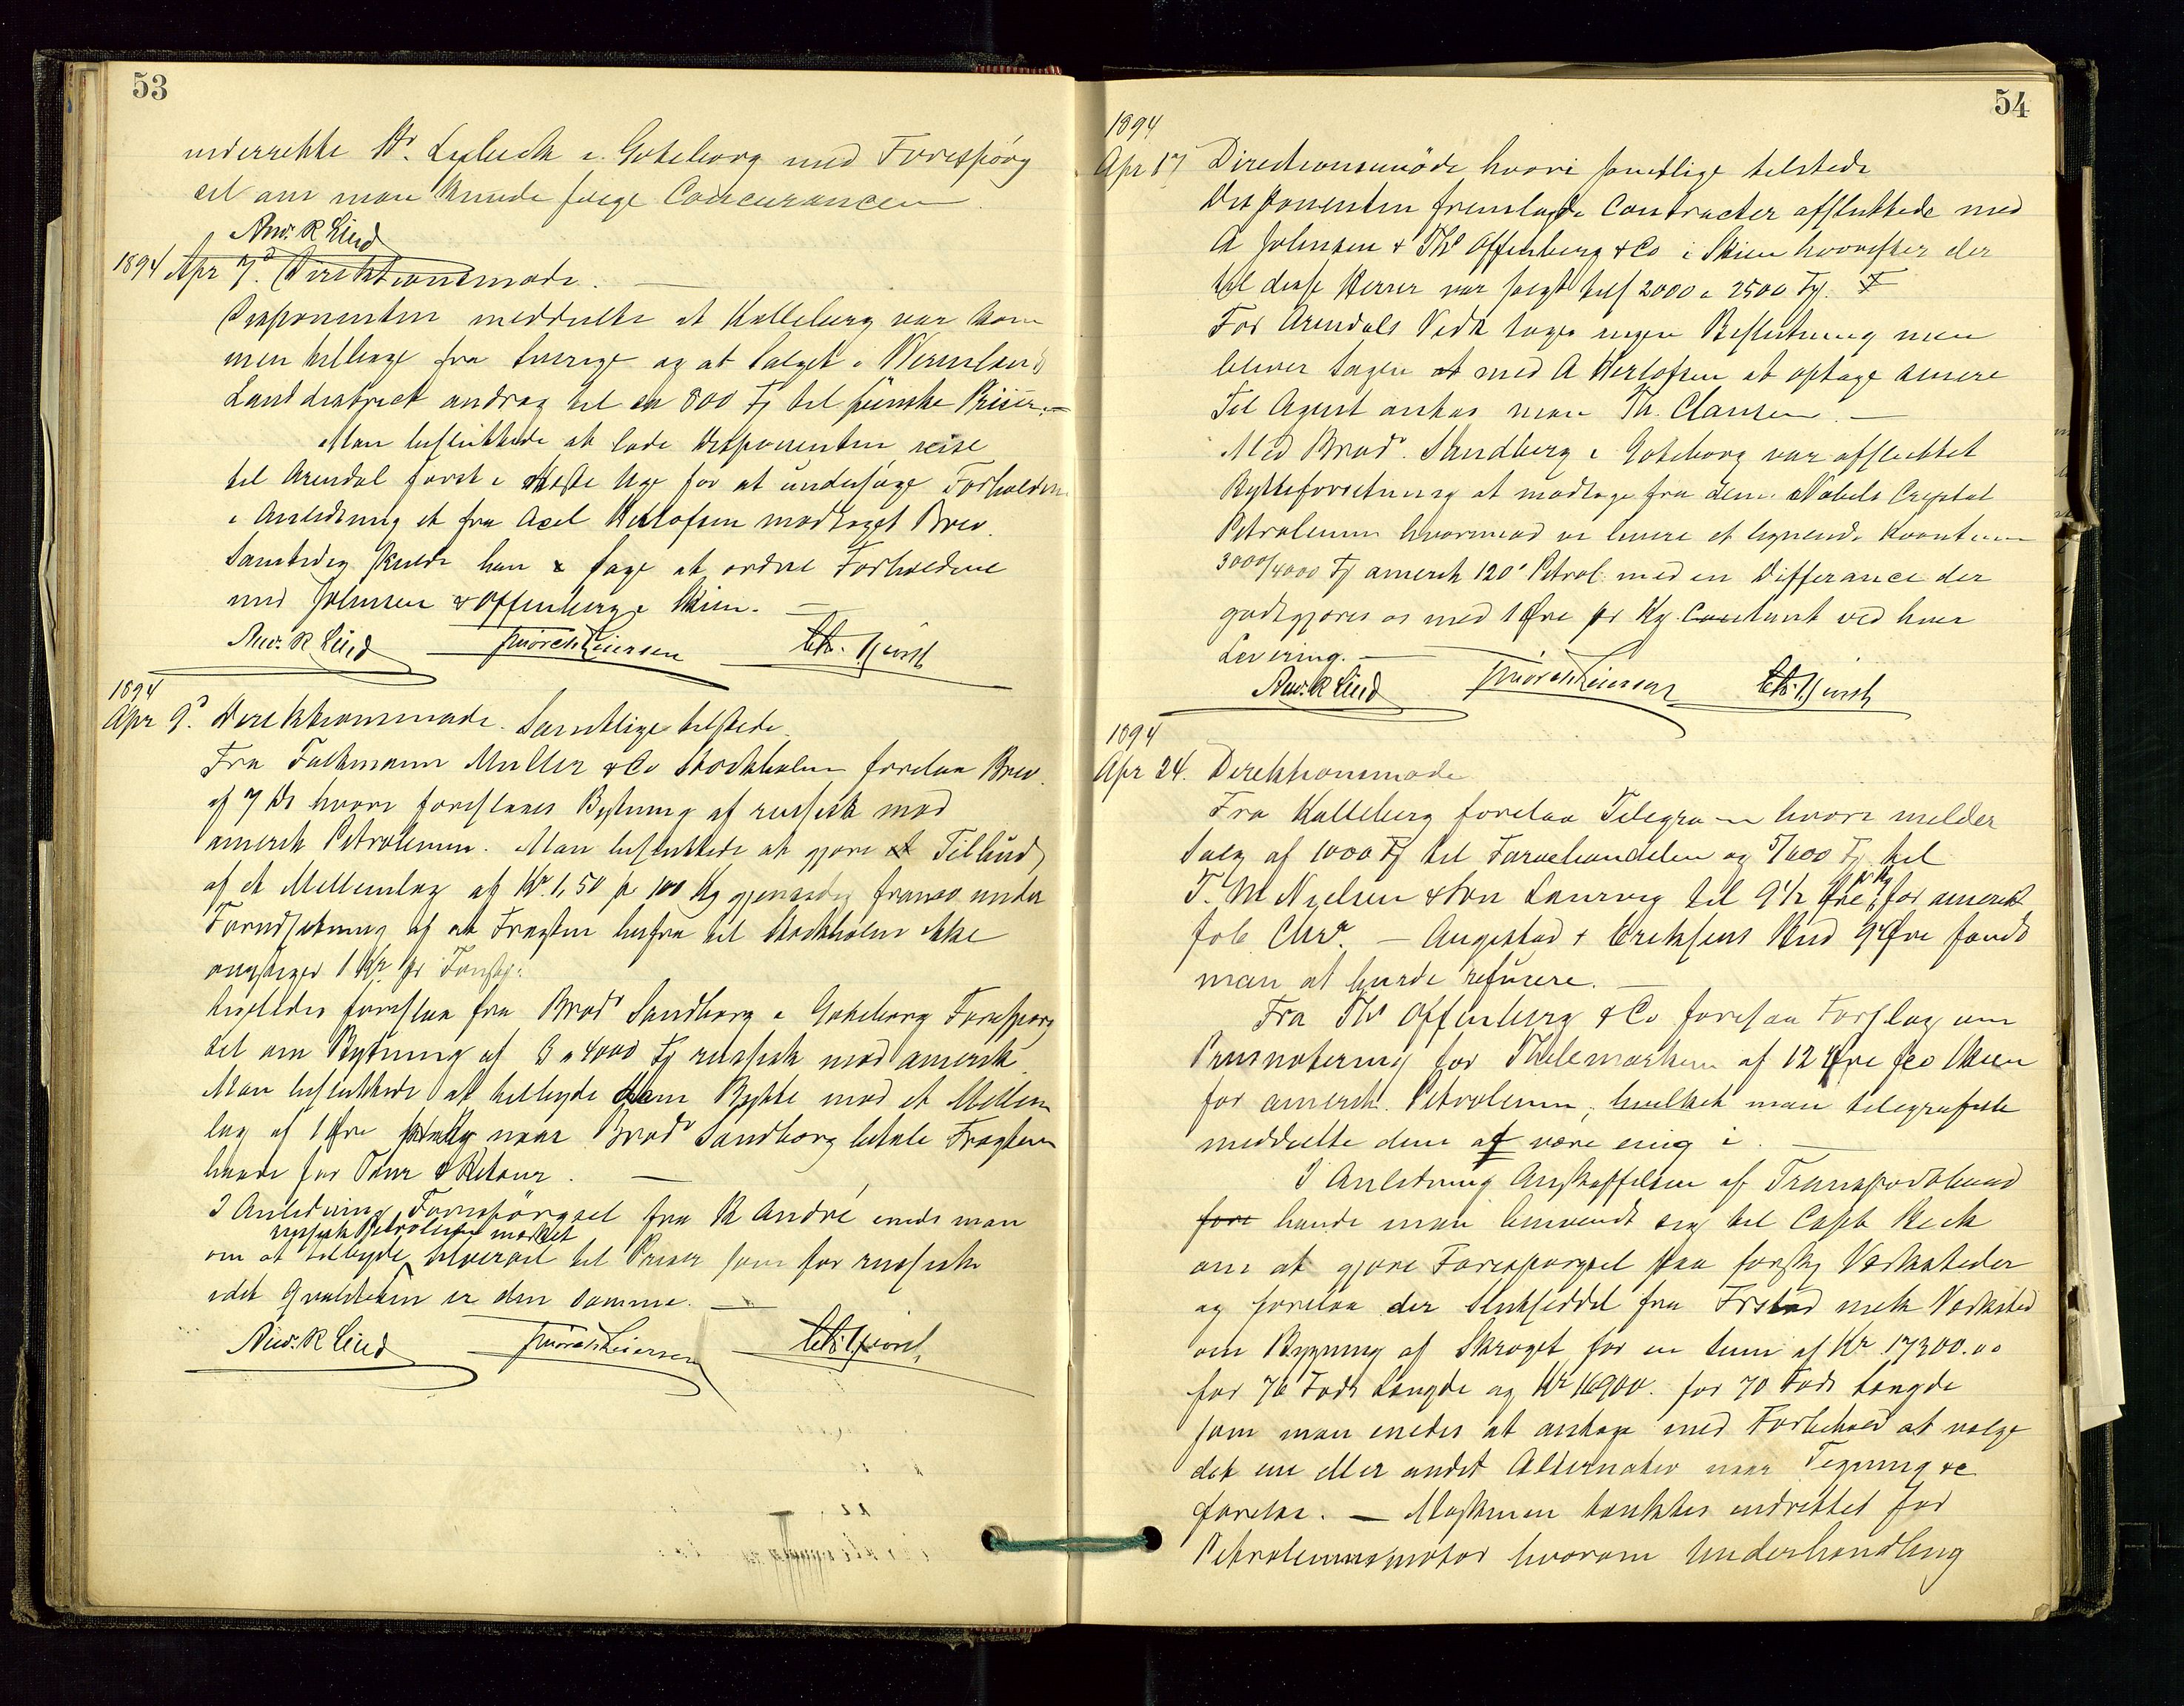 53
underrette Hr. Lybeck i Goteborg med Forespörg
sel om man kunde følge Concurancen
And. R Lind
1894 Apr 7d. Direktionsmøde.
Disponenten meddelte at Kalleberg var kom
men tilbage fra Sverige og at Salget i Wermlands
Landdistrict androg til ca 800 Fj til sünske Priser.—
Man besluttede at lade Disponenten reise
til Arendal først i næste Uge for at undersøge Forholdene
i Anledning et fra Axel Herlofsen modtaget Brev.
Samtidig skulde han søge at ordne Forholdene
med Johnsen & Offenberg i Skien. —
And. R Lind
1894
Apr 9d. Direktionsmøde. Samtlige tilstede.
Fra Falkmann Muller & Co Stockholm forelaa Brev
af 7 Ds hvori foreslaaes Bytning af russisk mod
amerik Petroleum. Man besluttede at gjøre et Tilbud
af et Mellemlag af Kr. 1,50 pr 100 Kg gjensidig franco under
Forudsætning af at Fragten herfra til Stockholm ikke
overstiger 1 Kr pr
Ligeledes forelaa fra Brødr Sandberg i Goteborg Forespörg
sel om Bytning af 3 a 4000 Fj russisk mod amerik.
Man besluttede at tilbyde dem Bytte mod et Mellem
lag af 1 Øre pr Kg naar Brødr Sandberg betale Fragten
baade for Tour & Retour. —
I Anledning Forespörgsel fra R André enedes man
russisk Petroleum mærket
om at tilbyde Silveroil til Priser som for russiske
idet Qvaliteten er den samme. —
And. R Lind
54
1894
Apr 17 Directionsmöde hvori samtlige tilstede
Disponenten fremlagde Contracter afsluttede med
A Johnsen & Ths Offenberg & Co i Skien hvorefter der
til disse Herrer var solgt tils 2000 a 2500 Fj. F
For Arendals Vedk toges ingen Beslutning men
bliver Sagen at med A Herlofsen at optage senere
Til Agent antas man Th. Clausen. —
Med Brødr. Sandberg i Goteborg var afsluttet
Bytteforretning at modtage fra dem Nobels Crystal
Petroleum hvormod vi levere et lignende Kvantum
3000/4000 Fj amerik 120° Petrol. med en Differance der
godtgjøres os med 1 Øre pr Kg. Contant ved hver
Levering. —
And. R Lind
1894
Apr 24. Direktionsmøde
Fra Kalleberg forelaa Telegram hvori melder
Salg af 1000 Fj til Farvehandelen og 5/600 Fj til
T. M Nielsen & Søn Laurvig til 9 1/2 Øre pr Kg for amerik
fob Chra. — Angestad & Eriksens Bud 9 Øre fandt
man at burde refusere. —
Fra Ths Offenberg & Co forelaa Forslag om
Prisnotering for Thelemarken af 12 Øre fco Skien
for amerik. Petroleum, hvilket man telegrafisk
meddelte dem at være enig i. —
I Anledning Anskaffelsen af Transportbaad
fore havde man henvendt sig til Capt Beck
om at gjøre Forespørgsel paa forskj Værksteder
og forelaa der Slutseddel fra Ørstad mek Værksted
om Bygning af Skroget for en Sum af Kr. 17300.00
for 76 Fods Længde og Kr 16900. for 70 Fods Længde
som man enedes at antage med Forbehold at vælge
det ene eller andet Alternativ naar Tegning &c
forelaa. — Maskinen tænktes indrettet for
Petroleumsmotor hvorom Underhandling